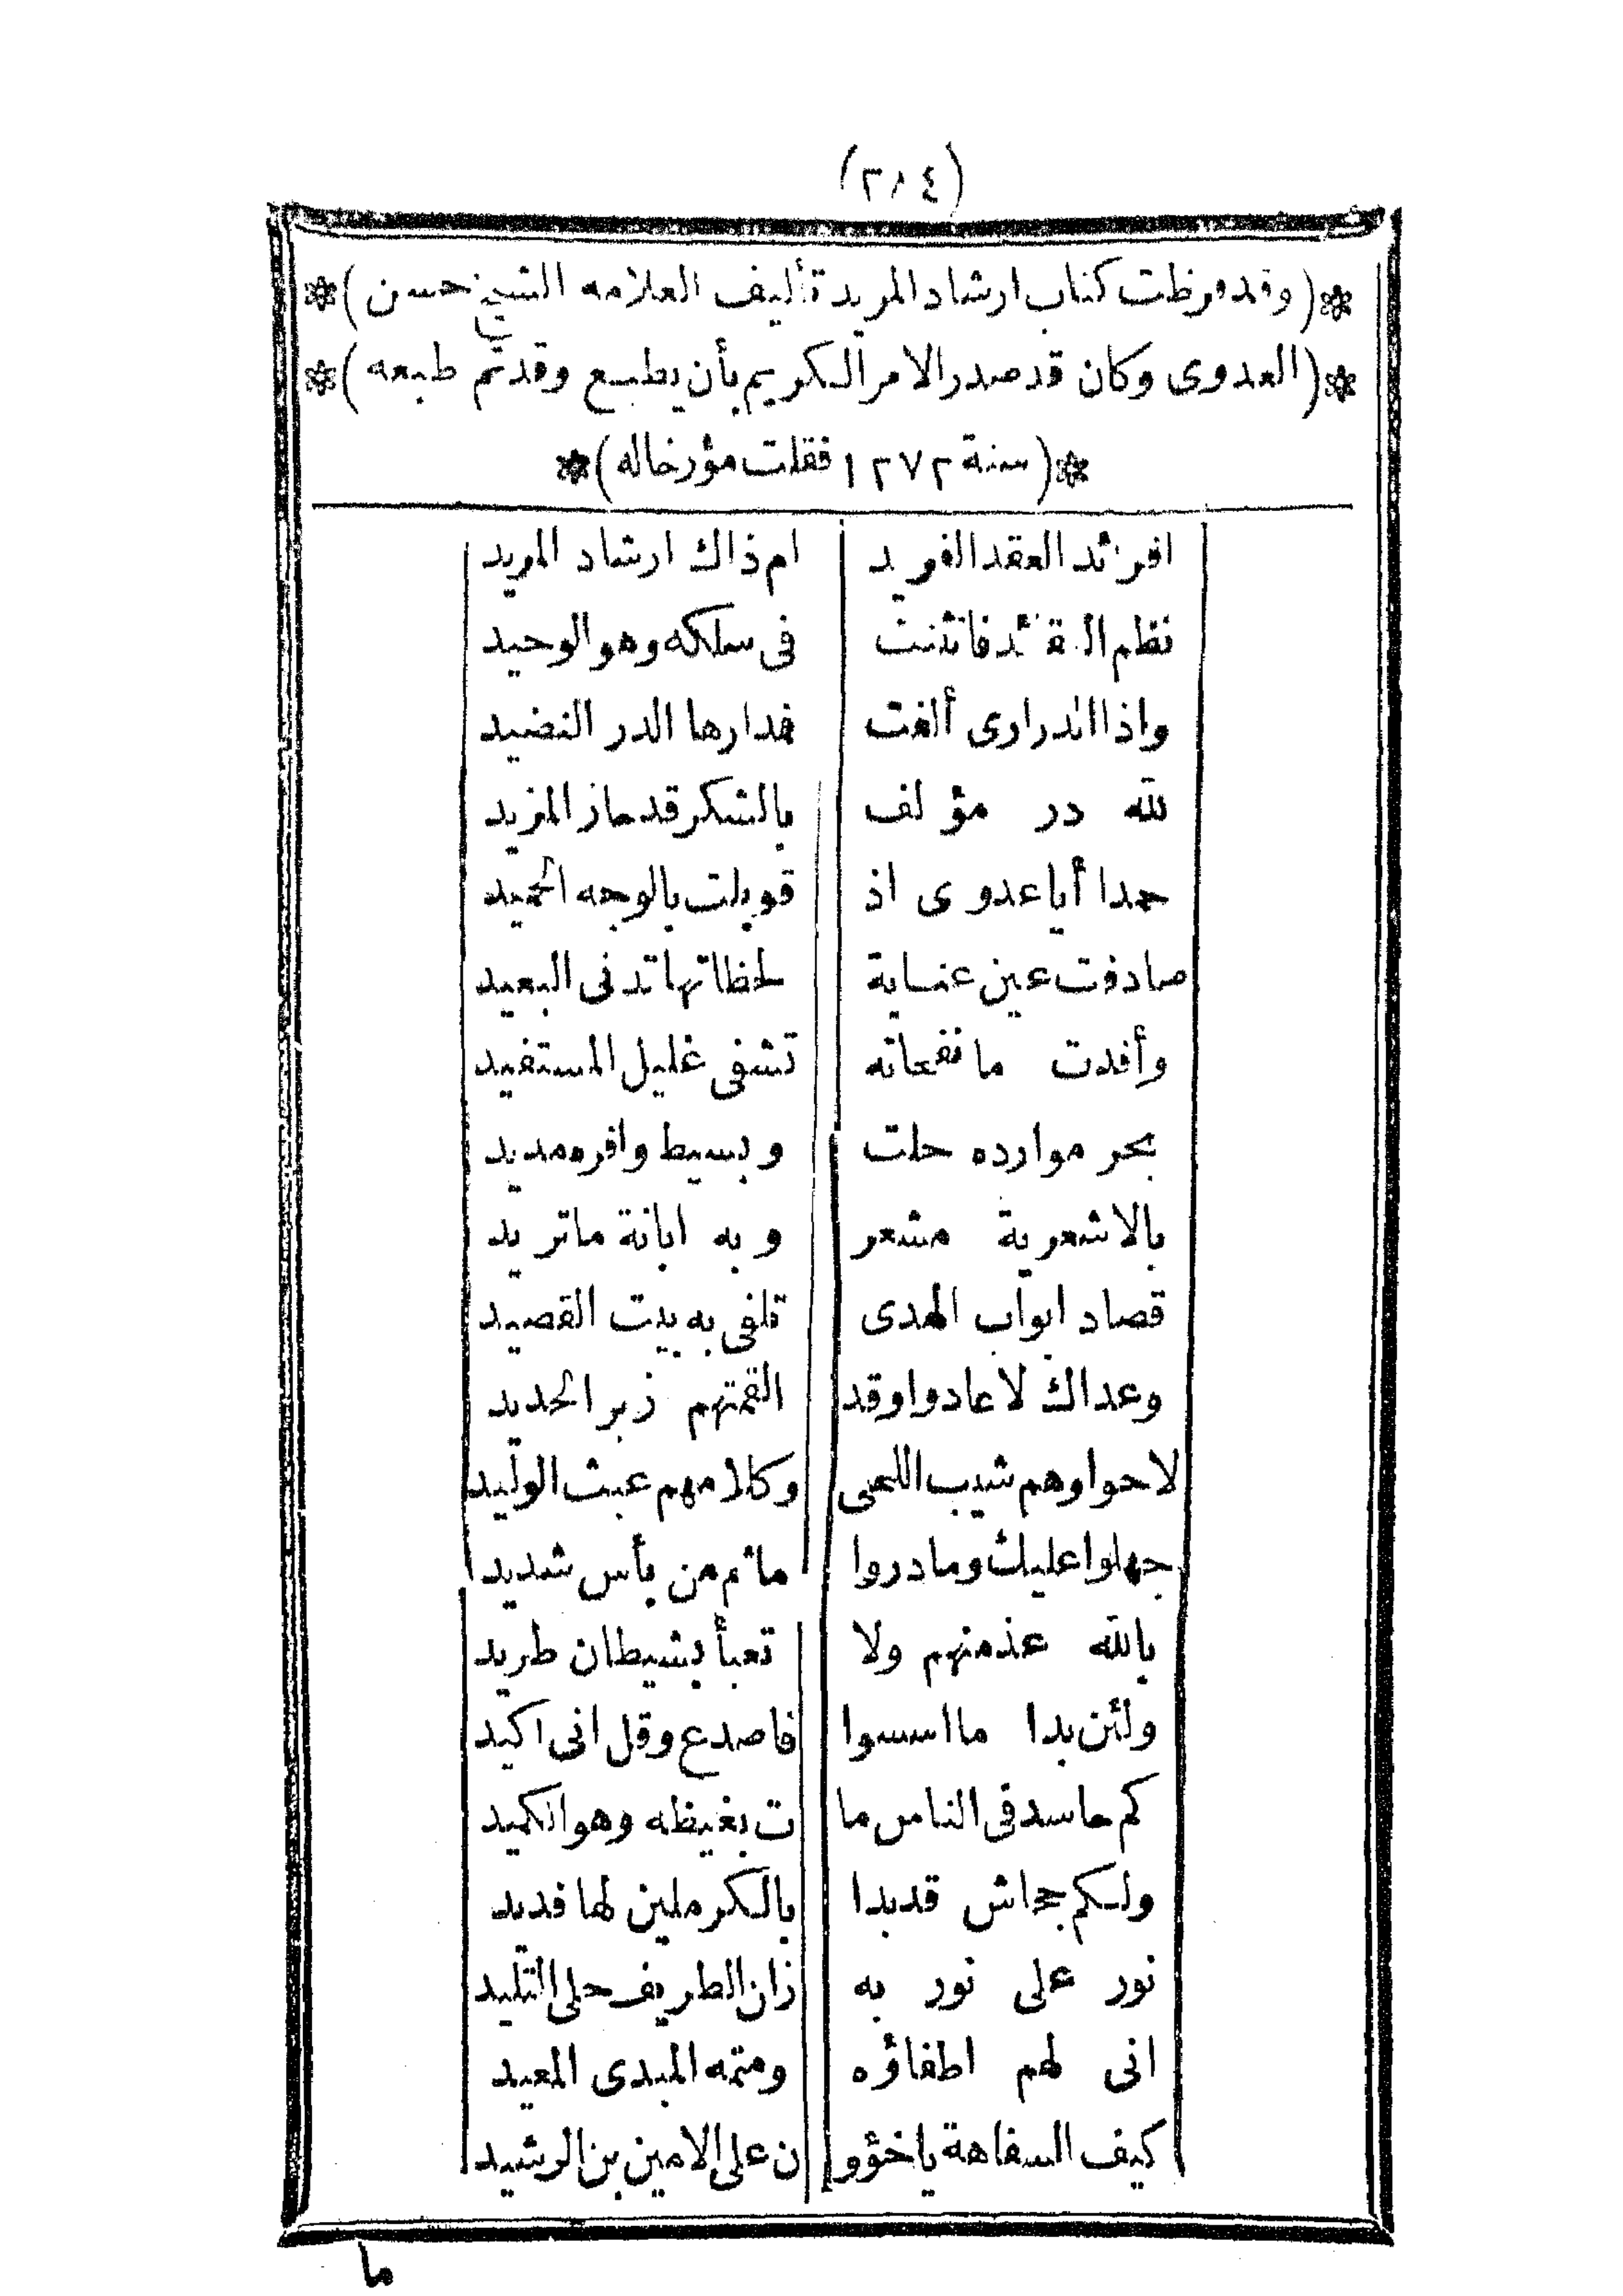 (٢٨٤)
(وقد قرظت كتاب ارشاد المريد تأليف العلامه الشيخ حسن)
(العدوى وكان قد صدر الامر الكريم بأن يطبع وقد تم طبعه)
(سنة ١٢٧٢ فقلت مؤرخاله)
افرائد العقد الفريد ام ذاك ارشاد المريد
نظم العقائد فانثنت فى سلكه وهو الوحيد
واذا الدرارى ألفت فمدارها الدر النضيد
لله در مؤلف بالشكر قد حاز المزيد
حمدا أيا عدوى اذ قوبلت بالوجه الحميد
صادفت عين عناية لحظاتها تدنى البعيد
وأفدت ما نفحاته تشفى غليل المستفيد
بحر موارده حلت وبسيط وافره مديد
بالاشعرية مشعر وبه ابانة ماتريد
قصاد ابواب الهدى تلفى به بيت القصيد
وعداك لا عادوا وقد القمتهم زبر الحديد
لاحوا وهم شيب اللحى وكلامهم عبث الوليد
جهلوا عليك وما دروا ماثم من بأس شديد
بالله عذ منهم ولا تعبأ بشيطان طريد
ولئن بدا ما اسسوا فاصدع وقل انى اكيد
كم حاسد فى الناس ما ت بغيظه وهو الكميد
ولكم جحاش قد بدا بالكرملين لها فديد
نور على نور به زان الطريف حلى التليد
انى لهم اطفاؤه ومتمه المبدى المعيد
كيف السفاهة يا خؤو ن على الامين بن الرشيد
ما